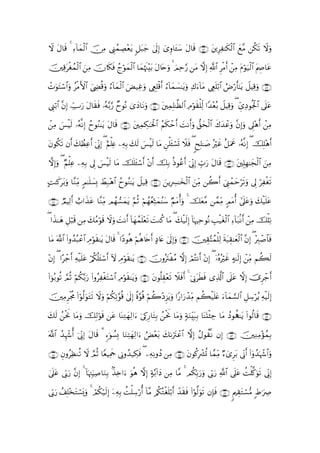 وَلَا تَكُن مَّعَ ٱلْكَـٰفِرِينَ ﴿٤٢﴾ قَالَ سَـَٔاوِىٓ إِلَىٰ جَبَلٍ يَعْصِمُنِى مِنَ ٱلْمَآءِ ۚ قَالَ لَا
عَاصِمَ ٱلْيَوْمَ مِنْ أَمْرِ ٱللَّهِ إِلَّا مَن رَّحِمَ ۚ وَحَالَ بَيْنَهُمَا ٱلْمَوْجُ فَكَانَ مِنَ ٱلْمُغْرَقِينَ
﴿٤٣﴾ وَقِيلَ يَـٰٓأَرْضُ ٱبْلَعِى مَآءَكِ وَيَـٰسَمَآءُ أَقْلِعِى وَغِيضَ ٱلْمَآءُ وَقُضِىَ ٱلْأَمْرُ وَٱسْتَوَتْ
عَلَى ٱلْجُودِىِّ ۖ وَقِيلَ بُعْدًا لِّلْقَوْمِ ٱلظَّـٰلِمِينَ ﴿٤٤﴾ وَنَادَىٰ نُوحٌ رَّبَّهُۥ فَقَالَ رَبِّ إِنَّ ٱبْنِى
مِنْ أَهْلِى وَإِنَّ وَعْدَكَ ٱلْحَقُّ وَأَنتَ أَحْكَمُ ٱلْحَـٰكِمِينَ ﴿٤٥﴾ قَالَ يَـٰنُوحُ إِنَّهُۥ لَيْسَ مِنْ
أَهْلِكَ ۖ إِنَّهُۥ عَمَلٌ غَيْرُ صَـٰلِحٍ ۖ فَلَا تَسْـَٔلْنِ مَا لَيْسَ لَكَ بِهِۦ عِلْمٌ ۖ إِنِّىٓ أَعِظُكَ أَن تَكُونَ
مِنَ ٱلْجَـٰهِلِينَ ﴿٤٦﴾ قَالَ رَبِّ إِنِّىٓ أَعُوذُ بِكَ أَنْ أَسْـَٔلَكَ مَا لَيْسَ لِى بِهِۦ عِلْمٌ ۖ وَإِلَّا
تَغْفِرْ لِى وَتَرْحَمْنِىٓ أَكُن مِّنَ ٱلْخَـٰسِرِينَ ﴿٤٧﴾ قِيلَ يَـٰنُوحُ ٱهْبِطْ بِسَلَـٰمٍ مِّنَّا وَبَرَكَـٰتٍ
عَلَيْكَ وَعَلَىٰٓ أُمَمٍ مِّمَّن مَّعَكَ ۚ وَأُمَمٌ سَنُمَتِّعُهُمْ ثُمَّ يَمَسُّهُم مِّنَّا عَذَابٌ أَلِيمٌ ﴿٤٨﴾
تِلْكَ مِنْ أَنۢبَآءِ ٱلْغَيْبِ نُوحِيهَآ إِلَيْكَ ۖ مَا كُنتَ تَعْلَمُهَآ أَنتَ وَلَا قَوْمُكَ مِن قَبْلِ هَـٰذَا ۖ
فَٱصْبِرْ ۖ إِنَّ ٱلْعَـٰقِبَةَ لِلْمُتَّقِينَ ﴿٤٩﴾ وَإِلَىٰ عَادٍ أَخَاهُمْ هُودًا ۚ قَالَ يَـٰقَوْمِ ٱعْبُدُوا۟ ٱللَّهَ مَا
لَكُم مِّنْ إِلَـٰهٍ غَيْرُهُۥٓ ۖ إِنْ أَنتُمْ إِلَّا مُفْتَرُونَ ﴿٥٠﴾ يَـٰقَوْمِ لَآ أَسْـَٔلُكُمْ عَلَيْهِ أَجْرًا ۖ إِنْ
أَجْرِىَ إِلَّا عَلَى ٱلَّذِى فَطَرَنِىٓ ۚ أَفَلَا تَعْقِلُونَ ﴿٥١﴾ وَيَـٰقَوْمِ ٱسْتَغْفِرُوا۟ رَبَّكُمْ ثُمَّ تُوبُوٓا۟
إِلَيْهِ يُرْسِلِ ٱلسَّمَآءَ عَلَيْكُم مِّدْرَارًا وَيَزِدْكُمْ قُوَّةً إِلَىٰ قُوَّتِكُمْ وَلَا تَتَوَلَّوْا۟ مُجْرِمِينَ
﴿٥٢﴾ قَالُوا۟ يَـٰهُودُ مَا جِئْتَنَا بِبَيِّنَةٍ وَمَا نَحْنُ بِتَارِكِىٓ ءَالِهَتِنَا عَن قَوْلِكَ وَمَا نَحْنُ لَكَ
بِمُؤْمِنِينَ ﴿٥٣﴾ إِن نَّقُولُ إِلَّا ٱعْتَرَىٰكَ بَعْضُ ءَالِهَتِنَا بِسُوٓءٍ ۗ قَالَ إِنِّىٓ أُشْهِدُ ٱللَّهَ
وَٱشْهَدُوٓا۟ أَنِّى بَرِىٓءٌ مِّمَّا تُشْرِكُونَ ﴿٥٤﴾ مِن دُونِهِۦ ۖ فَكِيدُونِى جَمِيعًا ثُمَّ لَا تُنظِرُونِ ﴿٥٥﴾
إِنِّى تَوَكَّلْتُ عَلَى ٱللَّهِ رَبِّى وَرَبِّكُم ۚ مَّا مِن دَآبَّةٍ إِلَّا هُوَ ءَاخِذٌۢ بِنَاصِيَتِهَآ ۚ إِنَّ رَبِّى عَلَىٰ
صِرَٰطٍ مُّسْتَقِيمٍ ﴿٥٦﴾ فَإِن تَوَلَّوْا۟ فَقَدْ أَبْلَغْتُكُم مَّآ أُرْسِلْتُ بِهِۦٓ إِلَيْكُمْ ۚ وَيَسْتَخْلِفُ رَبِّى